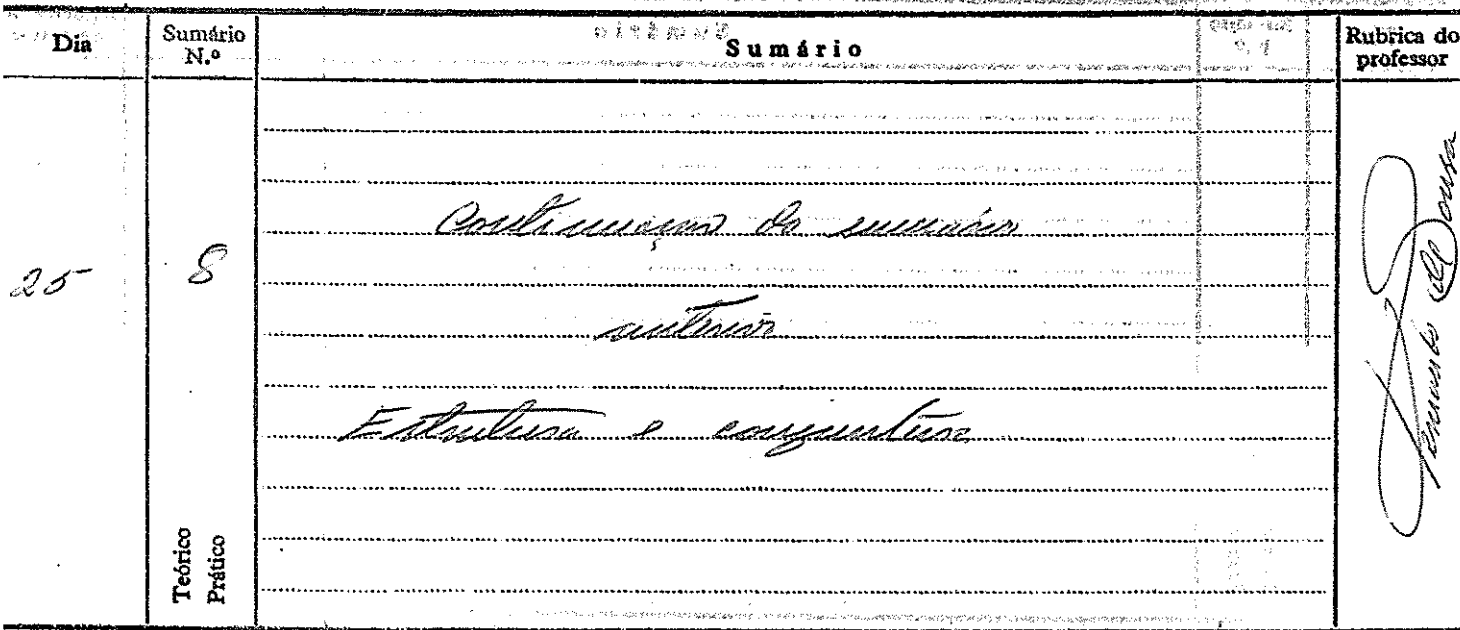 Dia
Sumário
N.º
Sumário
Rubrica do
professor
25
8
Continuação do sumário
anterior
Estrutura e conjuntura
de Sousa
Teórico
Prático